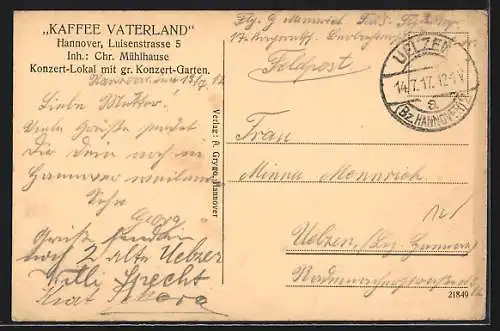 „KAFFEE VATERLAND"
Hannover, Luisenstrasse 5
Inh.: Chr. Mühlhause
Konzert-Lokal mit gr. Konzert-Garten.
Hannover, den 13/7. 17
Liebe Mutter!
Viele Grüße sendet
Dir Dein noch in
Hannover weilender
Sohn
Georg
Grüße senden
noch 2 alte Uelzer
Willi Specht
Verlag: A. Grygo, Hannover
Flg. G Mennrich
Feldpost
UELZEN
14.7.17. 12-1 V
a
(Bz. HANNOVER)
Frau
Minna Mennrich
Uelzen, Bz. Hannover
21849